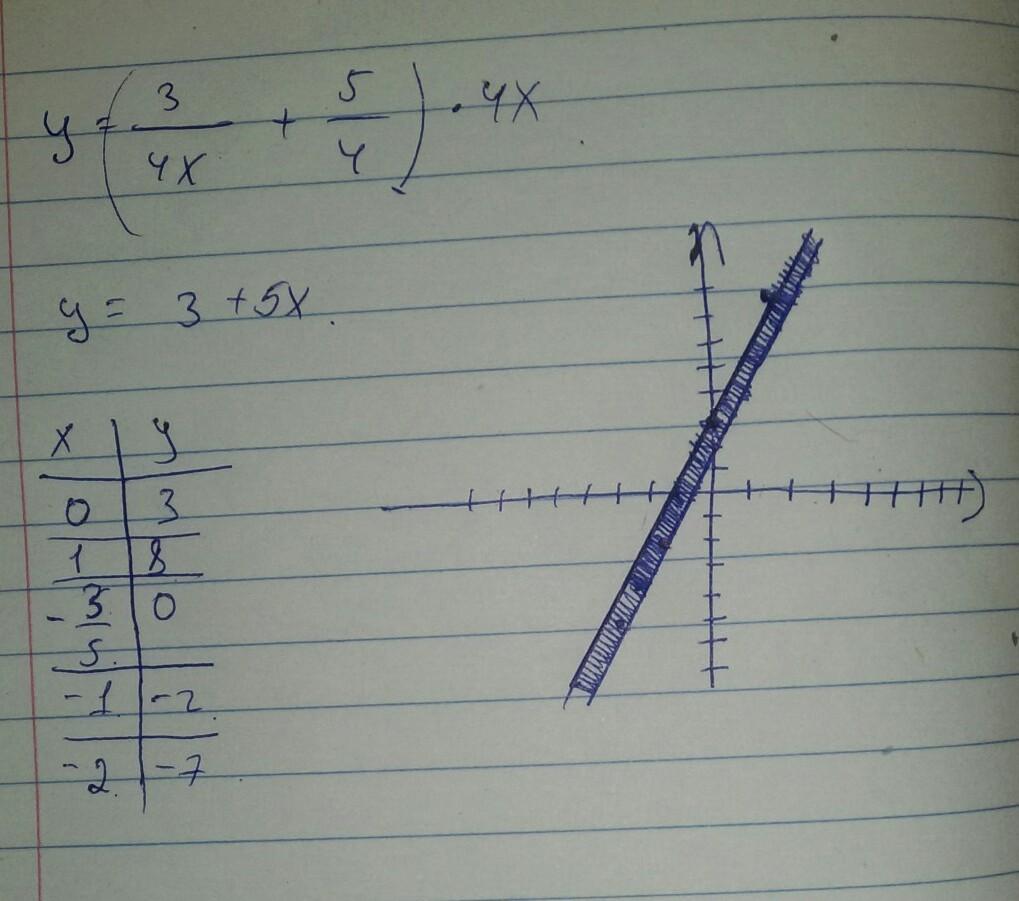 y = ( 3/4x + 5/4 ) · 4x
y = 3 + 5x.
x | y
0 | 3
1 | 8
-3/5. | 0
-1. | -2.
-2. | -7